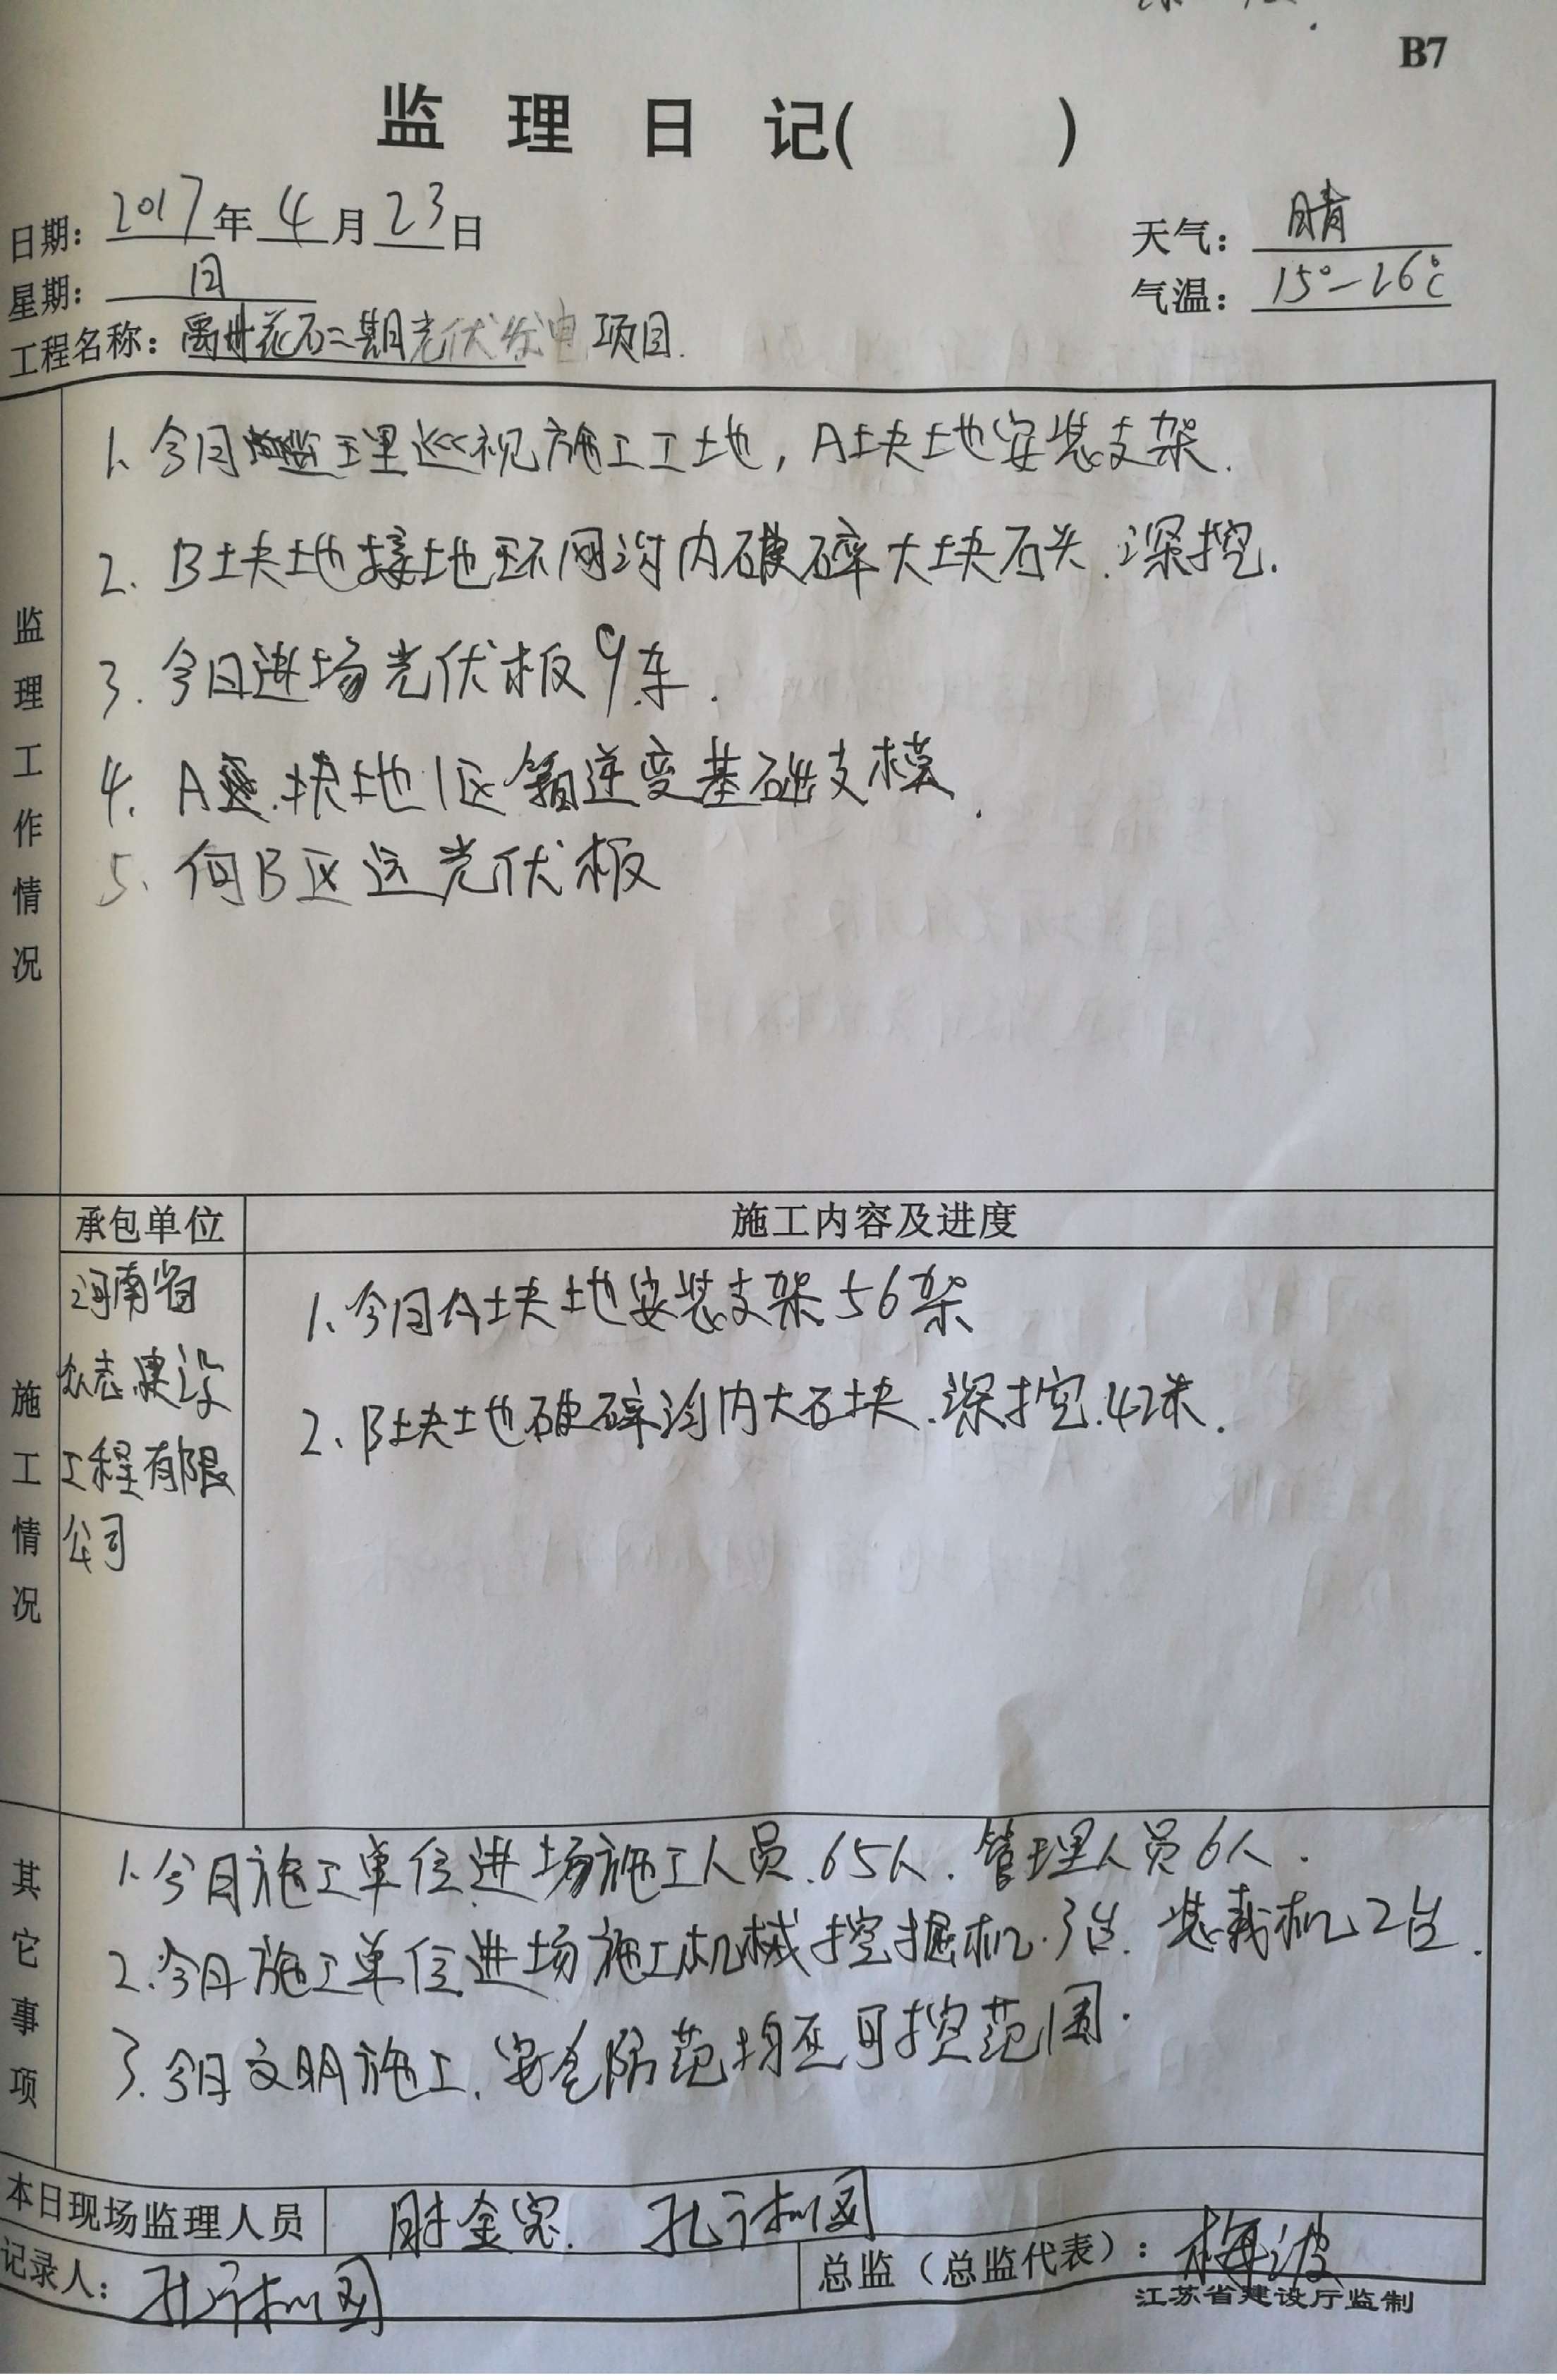 B7
监 理 日 记( )
日期: 2017年4月23日
天气: 晴
星期: 日
气温: 15°-26℃
工程名称: 禹州花石二期光伏发电项目.
监理工作情况
1、今日监理巡视施工工地, A块土地安装支架.
2. B块土地接地环网沟内破碎大块石头.深挖.
3. 今日进场光伏板9车.
4. A块地1区箱逆变基础支模.
5、向B区运光伏板
承包单位
施工内容及进度
施工情况
河南省
众志建设
工程有限
公司
1、今日A块土地安装支架56架
2、B块土地破碎沟内大石块.深挖.42米.
其它事项
1.今日施工单位进场施工人员.65人.管理人员6人.
2.今日施工单位进场施工机械挖掘机.3台.装载机2台.
3.今日文明施工.安全防范均在可控范围.
本日现场监理人员
孔
记录人: 孔
总监（总监代表）: 梅波
江苏省建设厅监制